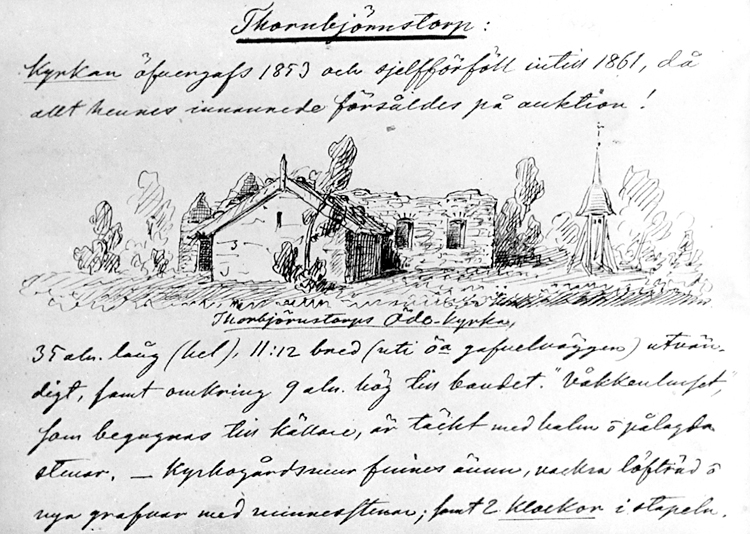 Thornbjörnstorp:
Kyrkan öfvergafs 1853 och sjelfförföll intill 1861, då
allt hennes innanrede försåldes på auktion!
Thorbjörnstorps Öde-Kyrka,
35 aln. lång (hel), 11:12 bred (uti öa gafvelväggen) utvän-
digt, samt omkring 9 aln. hög till bandet. "Våkkenhuset",
som begagnas till källare, är täckt med halm o pålagda
stenar. — Kyrkogårdsmur finnes ännu, vackra löfträd o
nya grafvar med minnesstenar; samt 2 Klockor i stapeln.